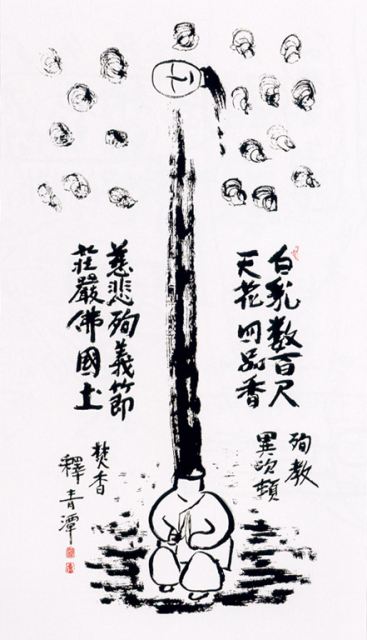 白乳数百尺
天花四品香
殉教
異次頓
慈悲殉義節
莊嚴佛國土
焚香
釋青潭